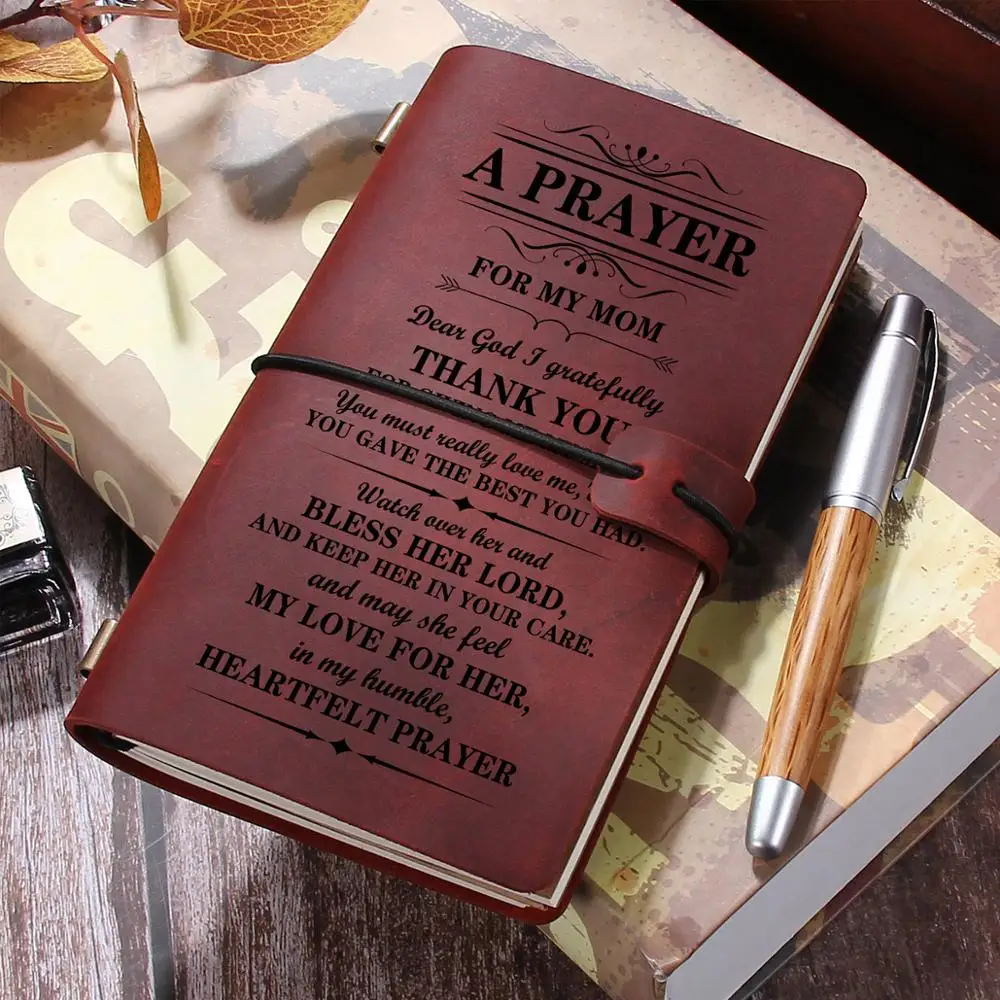 A PRAYER
FOR MY MOM
Dear God I gratefully
THANK YOU
FOR
You must really love me,
YOU GAVE THE BEST YOU HAD.
Watch over her and
BLESS HER LORD,
AND KEEP HER IN YOUR CARE.
and may she feel
MY LOVE FOR HER,
in my humble,
HEARTFELT PRAYER